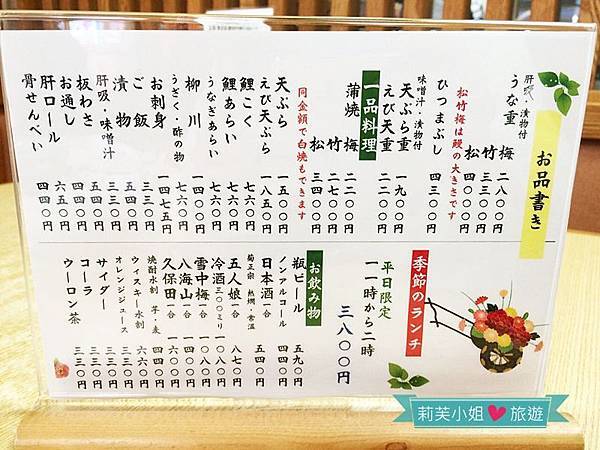 お品書き
肝吸・漬物付
うな重
梅 二八〇〇円
竹 三三〇〇円
松 四〇〇〇円
松竹梅は鰻の大きさです
ひつまぶし 四三〇〇円
味噌汁・漬物付
天ぷら重 一九〇〇円
えび天重 二二〇〇円
一品料理
蒲焼
梅 二二〇〇円
竹 二七〇〇円
松 三四〇〇円
同金額で白焼もできます
天ぷら 一五〇〇円
えび天ぷら 一八五〇円
鯉こく 七六〇円
鯉あらい 七六〇円
うなぎあらい
柳川 一四〇〇円
うざく・酢の物 七六〇円
お刺身 一四七五円
ご飯 三三〇円
漬物 五四〇円
肝吸・味噌汁
板わさ 五四〇円
お通し
肝ロール 六五〇円
骨せんべい 四四〇円
季節のランチ
平日限定
一一時から二時
三八〇〇円
お飲み物
瓶ビール 五九〇円
ノンアルコール 四四〇円
日本酒 一合 五四〇円
菊正宗 熱燗・常温
五人娘 一合 八七〇円
冷酒 三〇〇より
雪中梅 一合
八海山 一合
久保田 一合
焼酎水割 芋・麦
ウィスキー水割
オレンジジュース
サイダー
コーラ 三三〇円
ウーロン茶 三三〇円
莉芙小姐 旅遊